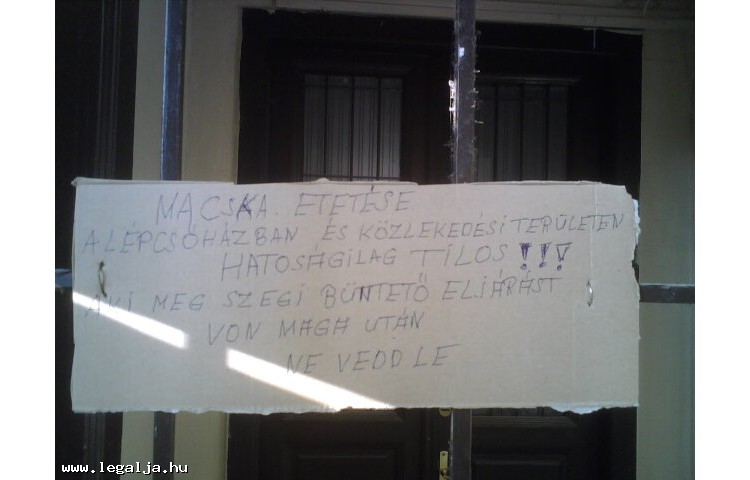 MACSKA ETETÉSE
A LÉPCSŐHÁZBAN ÉS KÖZLEKEDÉSI TERÜLETEN
HATOSÁGILAG TILOS !!!
AKI MEG SZEGI BÜNTETŐ ELJÁRÁST
VON MAGA UTÁN
NE VEDD LE
www.legalja.hu